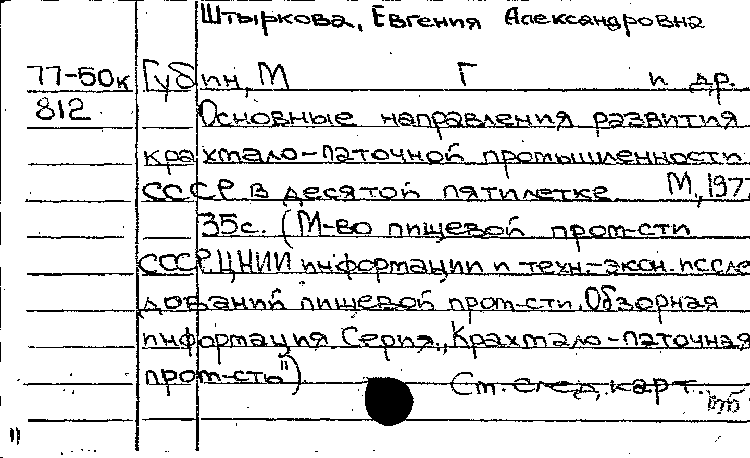 Штыркова, Евгения Александровна
77-50к Губин, М Г и др.
812 Основные направления развития
крахмало-паточной промышленности
СССР в десятой пятилетке М., 197
35с. (М-во пищевой пром-сти
СССР. ЦНИИ информации и техн.-экон. иссле
дований пищевой пром-сти. Обзорная
информация. Серия „Крахмало-паточная
пром-сть")
См. след. карт.